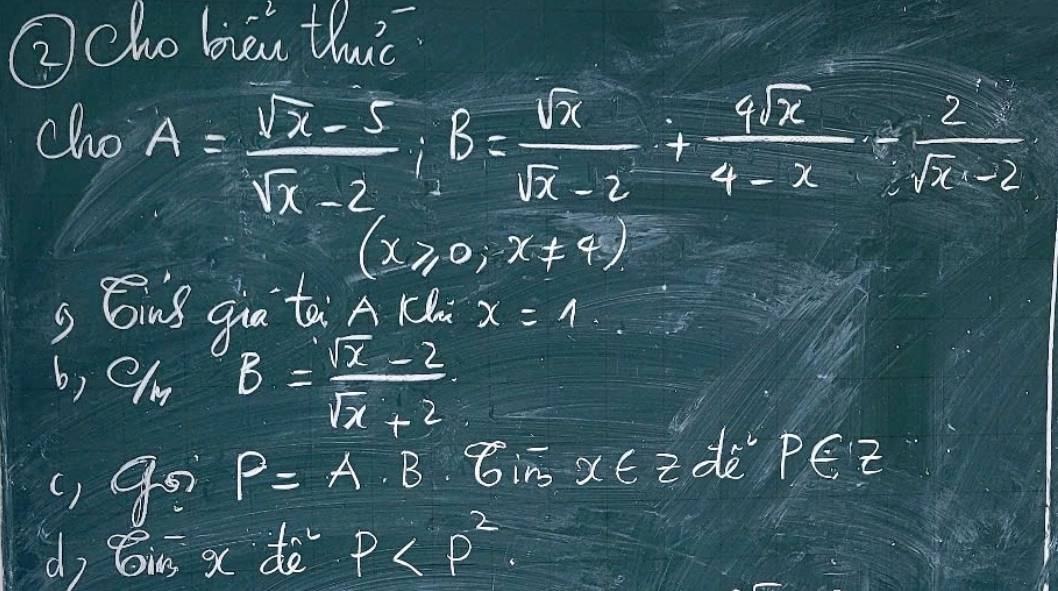 ② Cho biểu thức
Cho A = (√x - 5)/(√x - 2) ; B = √x/(√x - 2) + 4√x/(4 - x) - 2/(√x - 2)
(x ⩾ 0; x ≠ 4)
a, Tính giá trị A khi x = 1.
b, C/m B = (√x - 2)/(√x + 2).
c, Gọi P = A . B . Tìm x ∈ Z để P ∈ Z
d, Tìm x để P < P² .